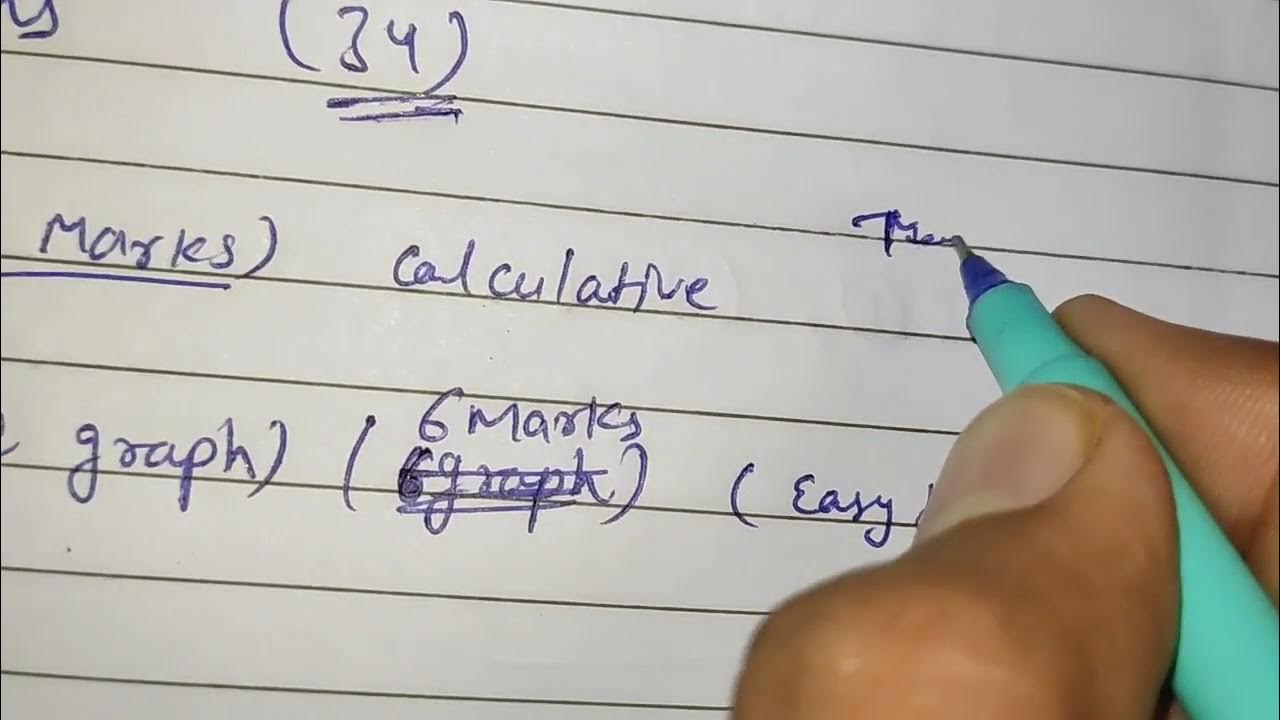 (34)
Marks) Calculative
6 Marks
graph) (6graph) (Easy